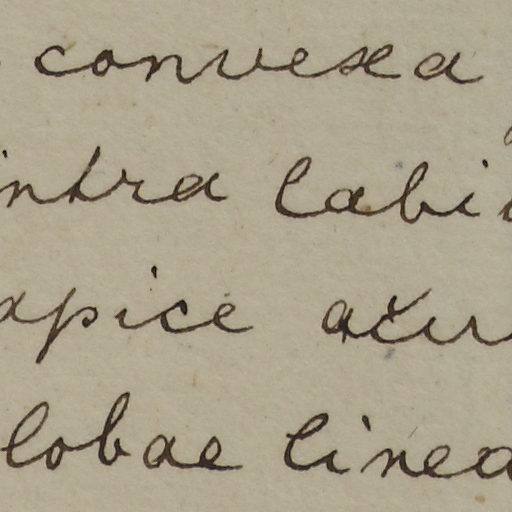 convexa
intra labi
apice
lobae linea